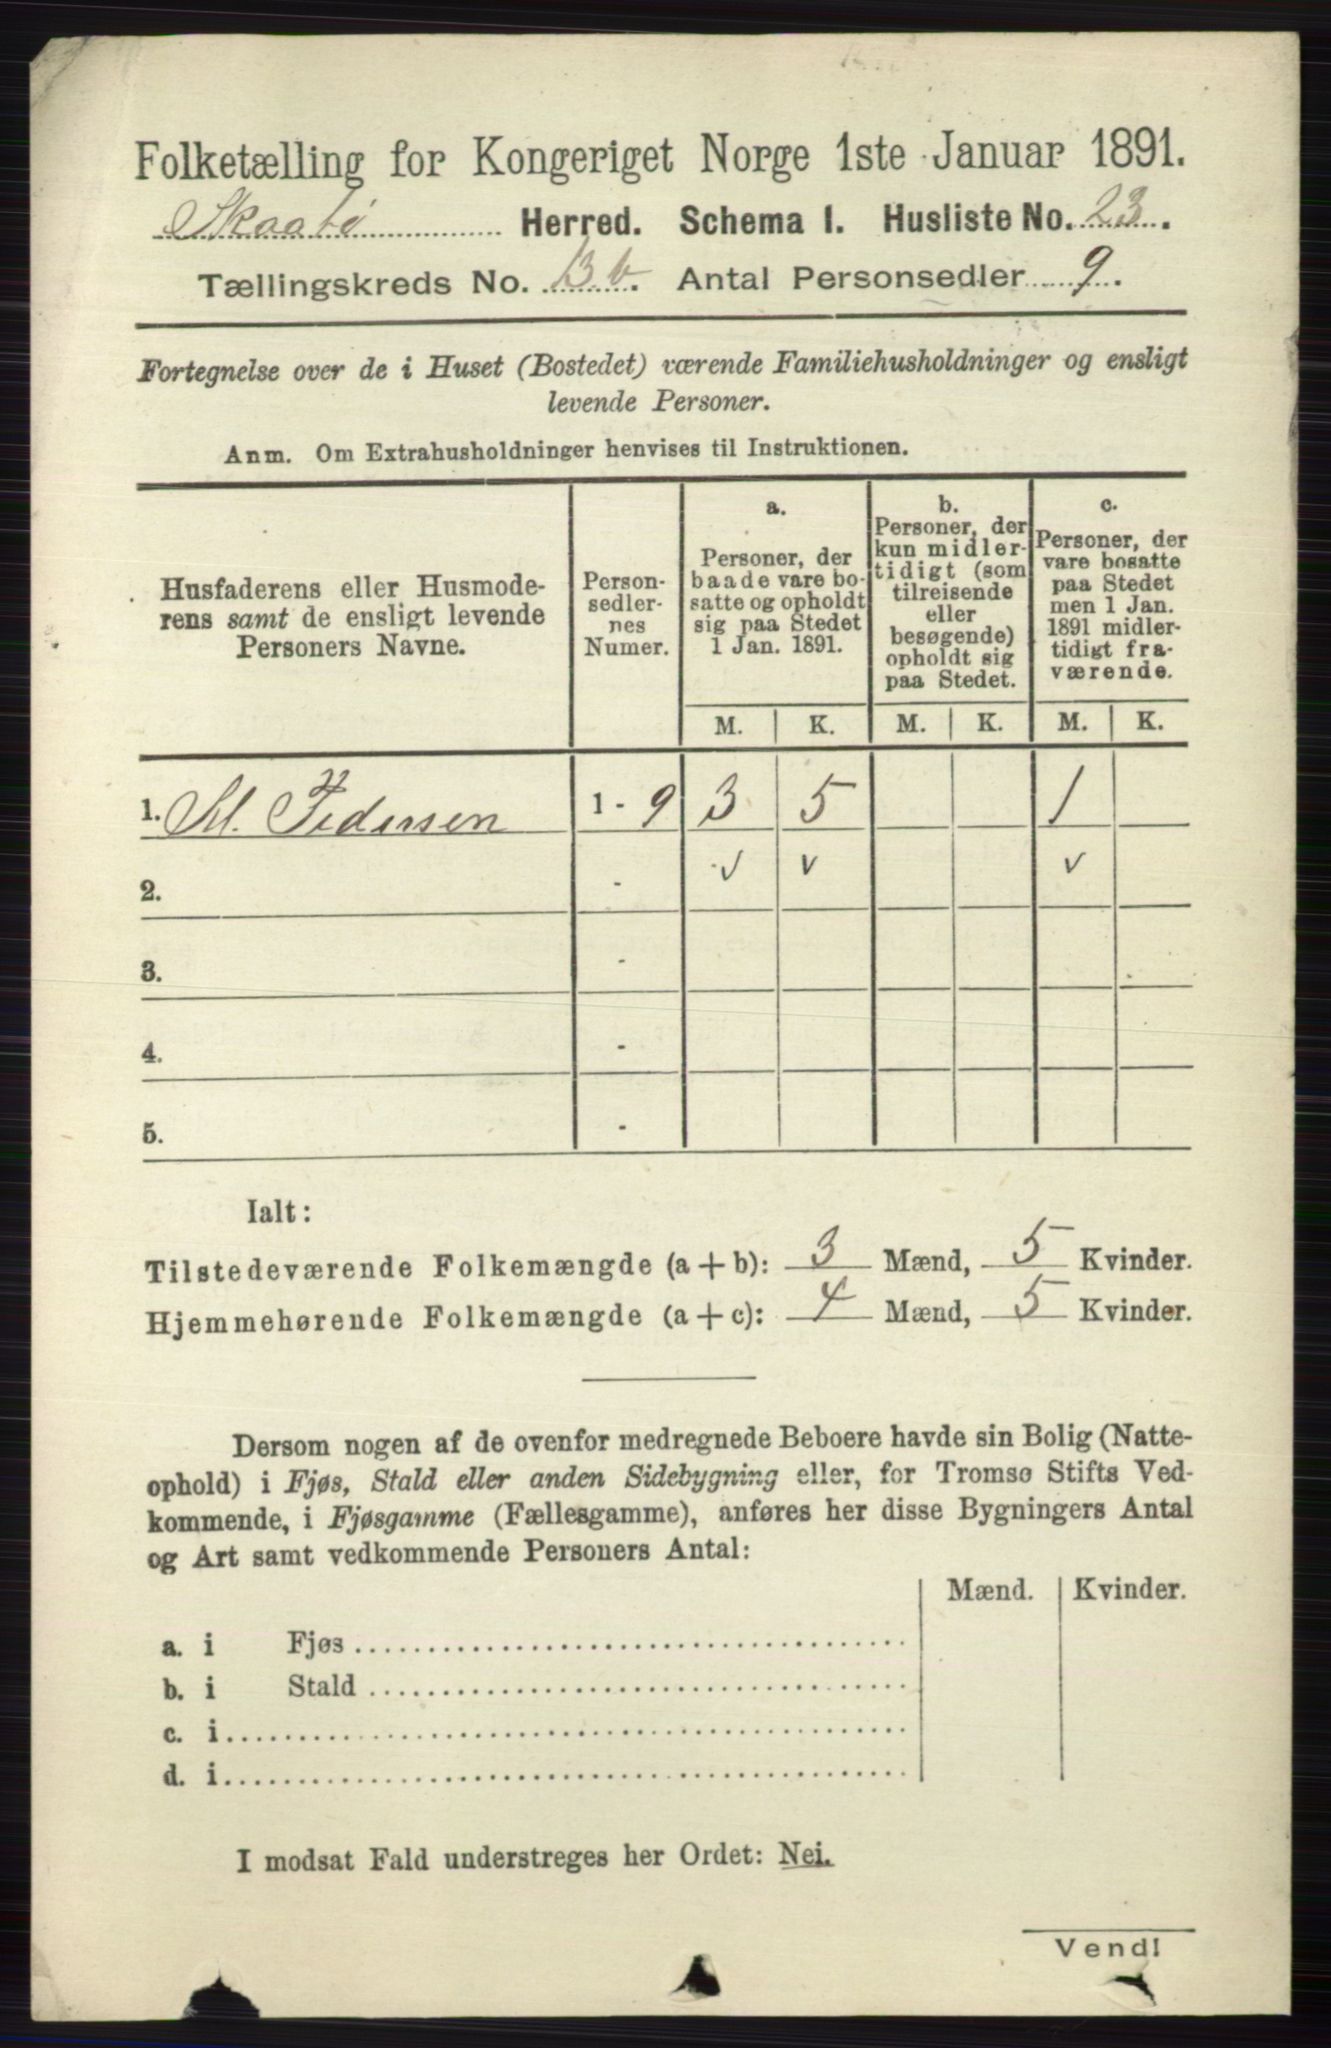 Folketælling for Kongeriget Norge 1ste Januar 1891.
Skaatø Herred. Schema I. Husliste No. 23.
Tællingskreds No. 13 b. Antal Personsedler 9.
Fortegnelse over de i Huset (Bostedet) værende Familiehusholdninger og ensligt
levende Personer.
Anm. Om Extrahusholdninger henvises til Instruktionen.
Husfaderens eller Husmode-
rens samt de ensligt levende
Personers Navne.
Person-
sedler-
nes
Numer.
a.
Personer, der
baade vare bo-
satte og opholdt
sig paa Stedet
1 Jan. 1891.
b.
Personer, der
kun midler-
tidigt (som
tilreisende
eller
besøgende)
opholdt sig
paa Stedet.
c.
Personer, der
vare bosatte
paa Stedet
men 1 Jan.
1891 midler-
tidigt fra-
værende.
M. K. M. K. M. K.
1. Pedersen 1 - 9 3 5 1
2. - v v v
3. -
4. -
5. -
Ialt:
Tilstedeværende Folkemængde (a + b): 3 Mænd, 5 Kvinder.
Hjemmehørende Folkemængde (a + c): 4 Mænd, 5 Kvinder.
Dersom nogen af de ovenfor medregnede Beboere havde sin Bolig (Natte-
ophold) i Fjøs, Stald eller anden Sidebygning eller, for Tromsø Stifts Ved-
kommende, i Fjøsgamme (Fællesgamme), anføres her disse Bygningers Antal
og Art samt vedkommende Personers Antal:
Mænd. Kvinder.
a. i Fjøs
b. i Stald
c. i
d. i
I modsat Fald understreges her Ordet: Nei.
Vend!